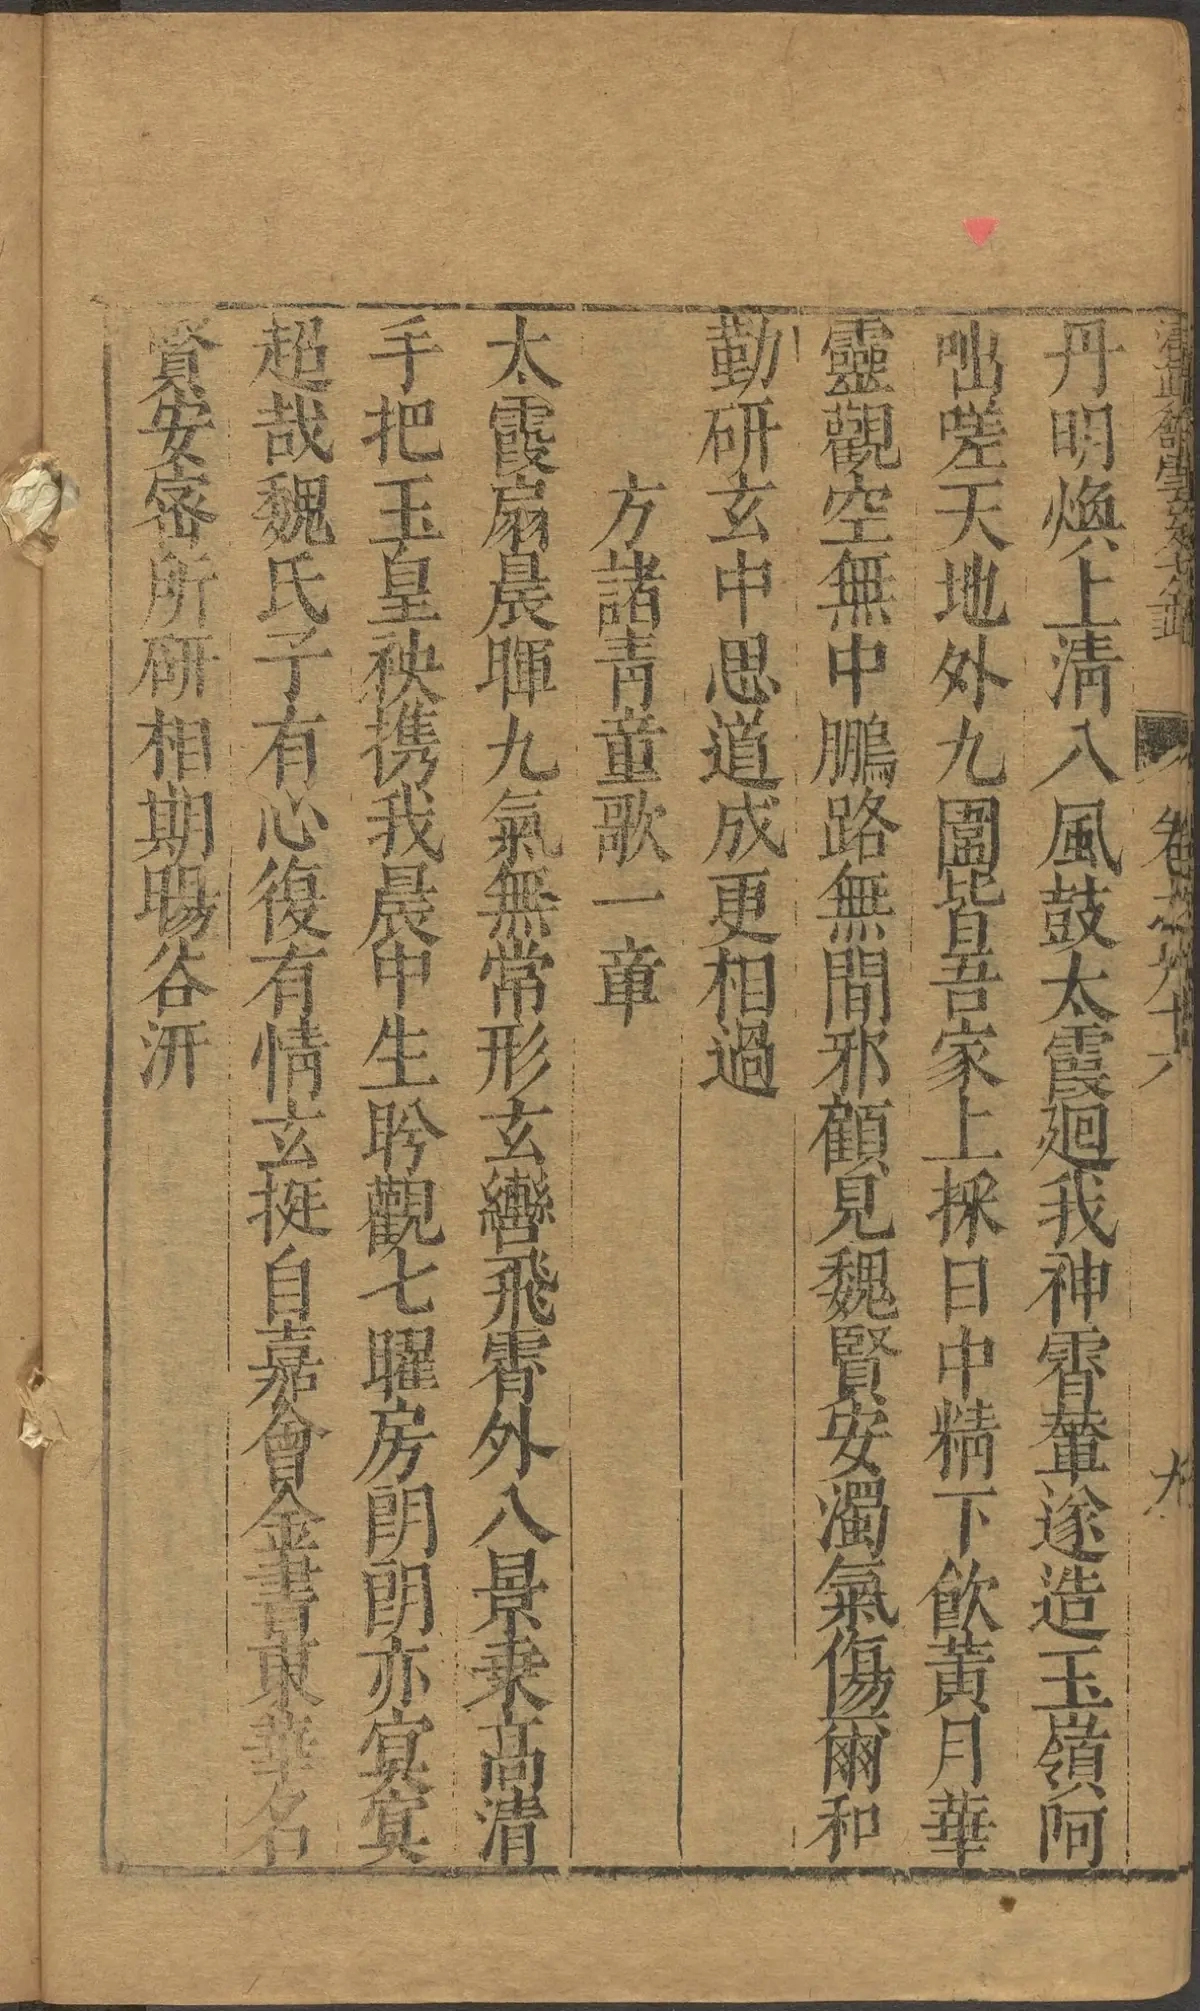 卷之九十六
丹明煥上清八風鼓太霞廻我神霄輦遂造玉嶺阿
咄嗟天地外九圍皆吾家上採日中精下飲黃月華
靈觀空無中鵬路無間邪顧見魏賢安濁氣傷爾和
勤研玄中思道成更相過
方諸靑童歌一章
太霞扇晨暉九氣無常形玄轡飛霄外八景乘高清
手把玉皇袂携我晨中生盻觀七曜房朗朗亦㝠㝠
超哉魏氏子有心復有情玄挺自嘉會金書東華名
賢安密所研相期暘谷汧